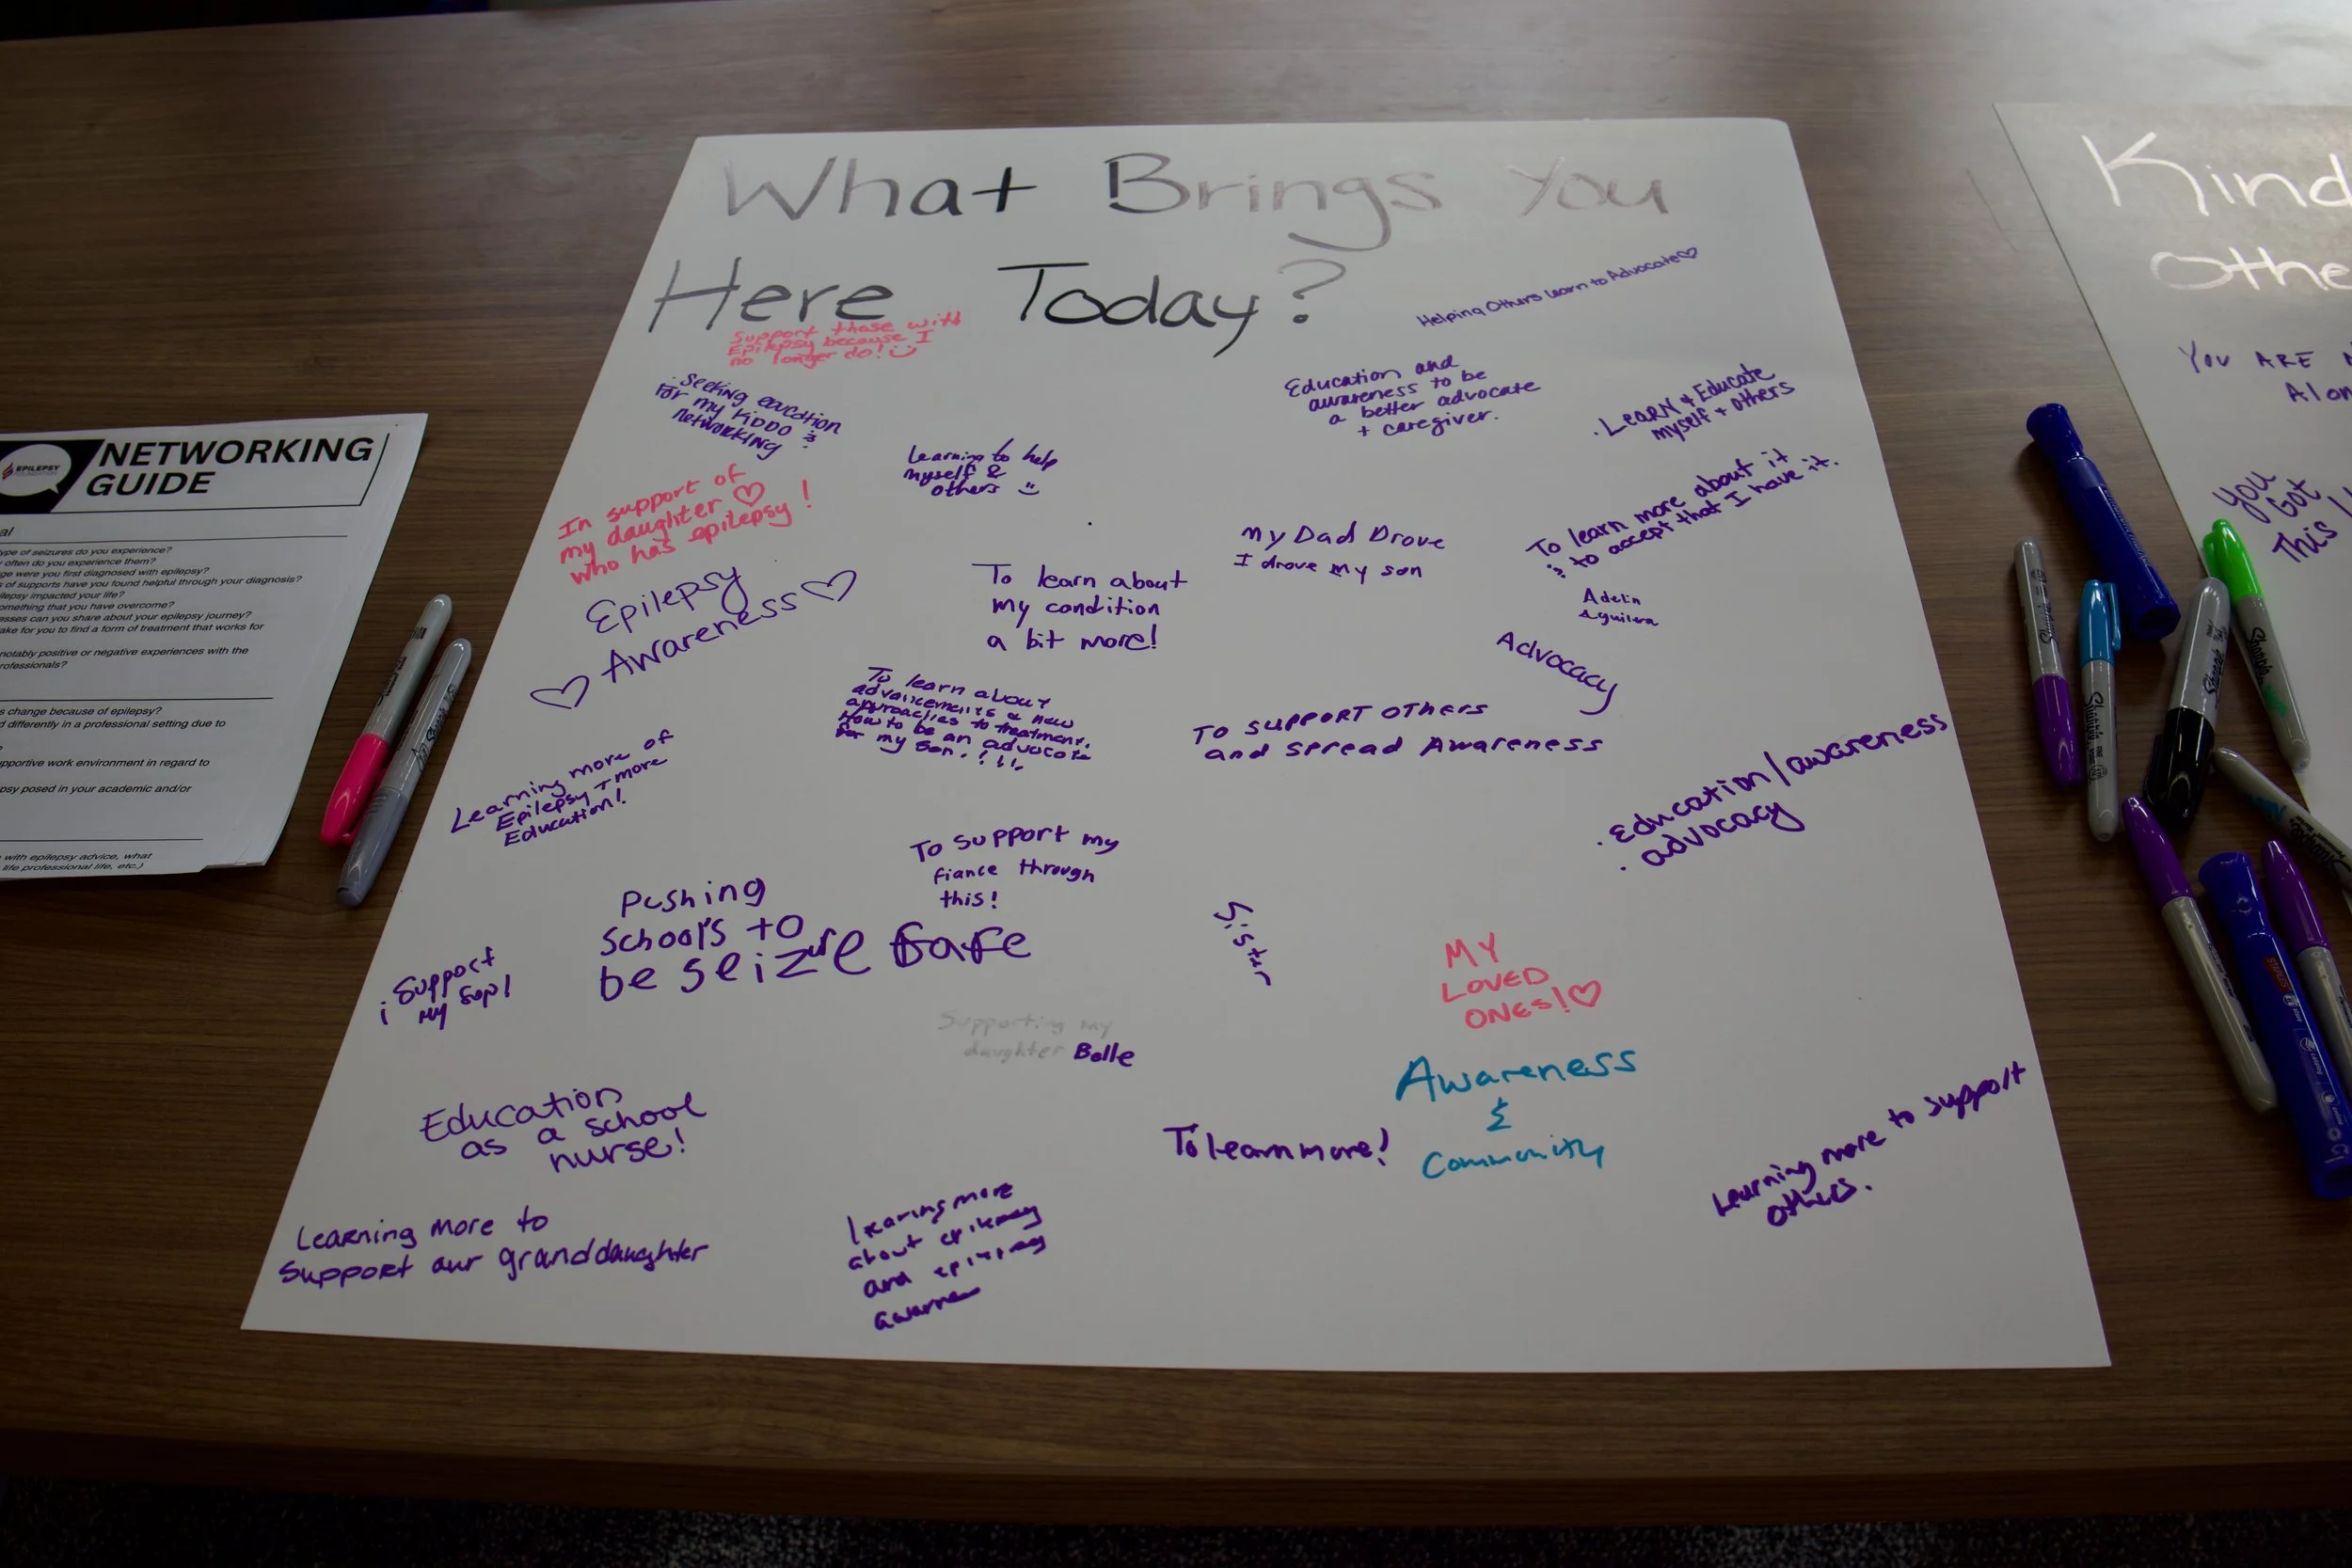 What Brings You
Here Today?
Helping Others Learn to Advocate
Support those with
Epilepsy because I
no longer do!
Seeking education
For my Kiddo &
Networking
Learning to help
myself &
others
Education and
awareness to be
a better advocate
+ caregiver.
. Learn & Educate
myself + others
In support of
my daughter
who has epilepsy!
My Dad Drove
I drove my son
To learn more about it
& to accept that I have it.
Adelin
Aguilera
Epilepsy
Awareness
To learn about
my condition
a bit more!
Advocacy
To learn about
advancements & new
approaches to treatment.
How to be an advocate
for my son.
To support others
and spread Awareness
Learning more of
Epilepsy + more
Education!
. Education/awareness
. advocacy
To support my
fiance through
this!
Pushing
School's to
be seizure safe
Sister
Support
my
My
Loved
Ones!
Supporting my
daughter Belle
Awareness
&
Community
Education
as a school
nurse!
To learn more!
Learning more to support
others.
Learning more to
support our granddaughter
more
about
and
NETWORKING
GUIDE
EPILEPSY
al
type of seizures do you experience?
often do you experience them?
ge were you first diagnosed with epilepsy?
s of supports have you found helpful through your diagnosis?
ilepsy impacted your life?
omething that you have overcome?
esses can you share about your epilepsy journey?
ake for you to find a form of treatment that works for
notably positive or negative experiences with the
rofessionals?
s change because of epilepsy?
d differently in a professional setting due to
?
pportive work environment in regard to
psy posed in your academic and/or
with epilepsy advice, what
life professional life, etc.)
Kind
Othe
You are
Alon
You
Got
This
Sharpie
Sharpie
Sharpie
STAPLES